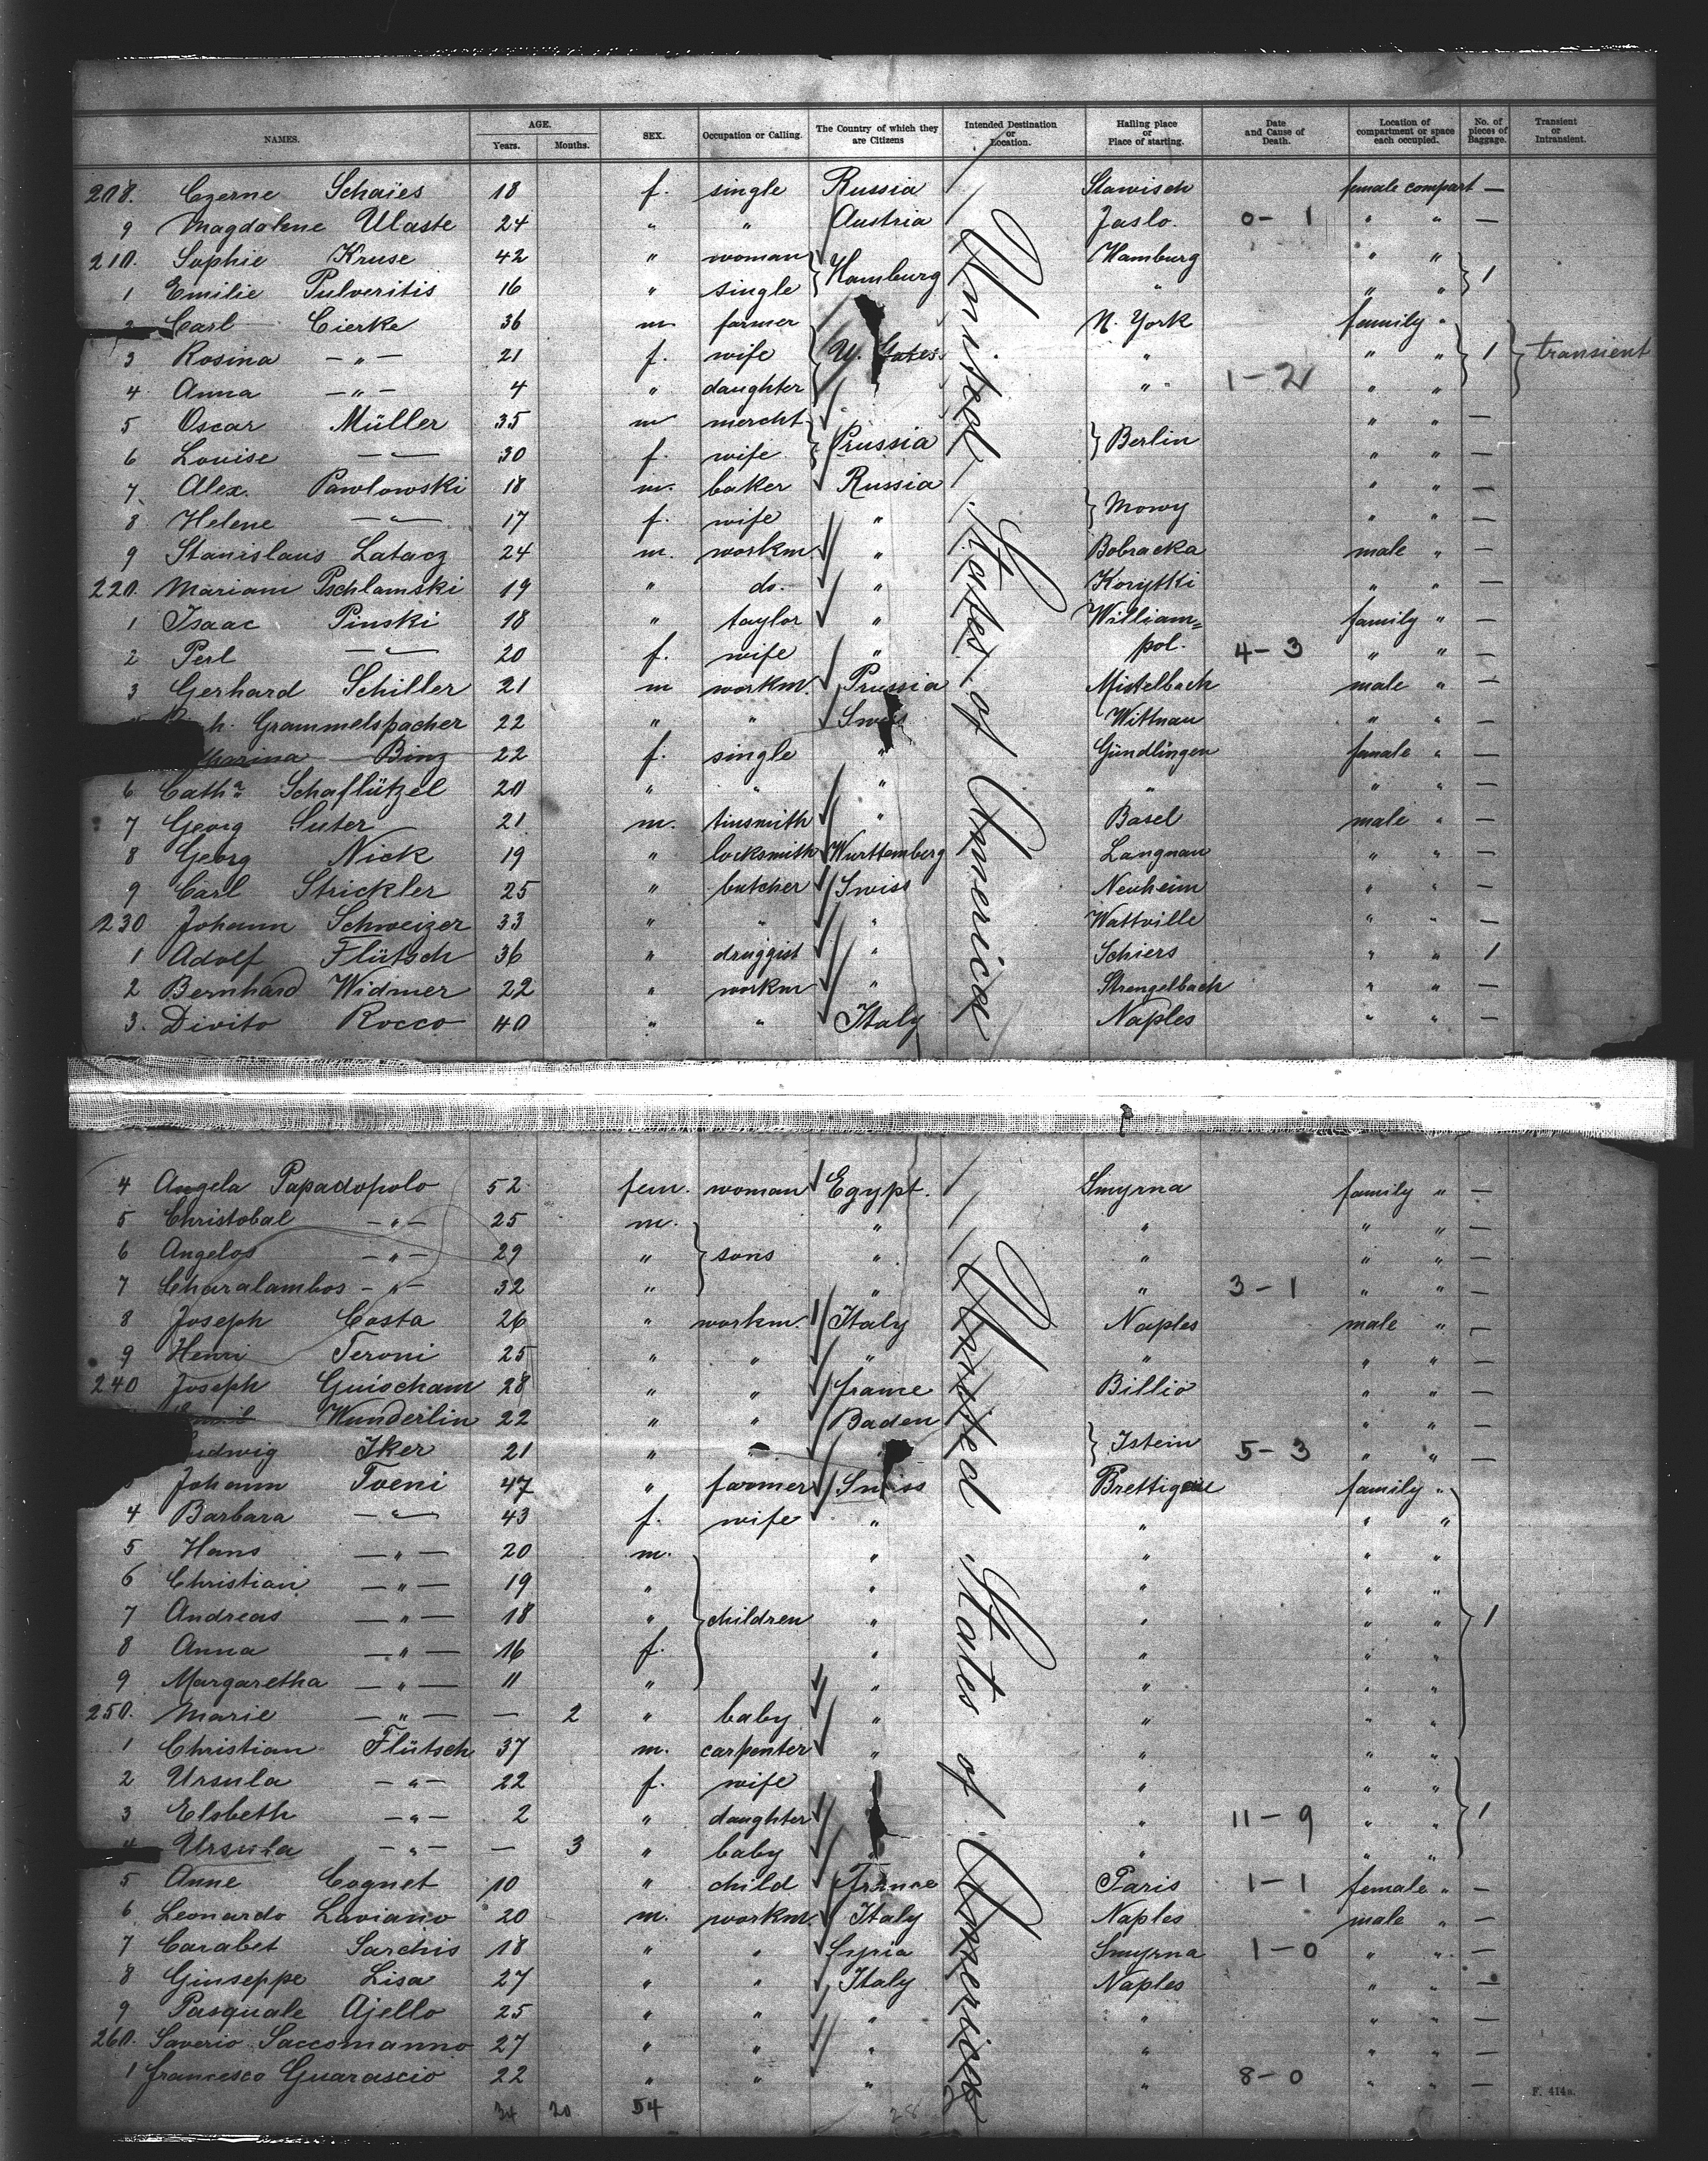 NAMES. AGE. Years. Months. SEX. Occupation or Calling. The Country of which they are Citizens Intended Destination or Location. Hailing place or Place of starting. Date and Cause of Death. Location of compartment or space each occupied. No. of pieces of Baggage. Transient or Intransient.
208. Czerne Schaïes 18 f. single Russia Stawisch female compart —
9 Magdalene Ulaste 24 " " Austria Jaslo. 0-1 " " —
210. Sophie Kruse 42 " woman } Hamburg Hamburg " " } 1
1 Emilie Pulveritis 16 " single " " "
2 Carl Cierke 36 m. farmer } U. States N. York family " } 1 } transient
3 Rosina —"— 21 f. wife " " "
4 Anna —"— 4 " daughter " 1-2 " "
5 Oscar Müller 35 m mercht } Prussia } Berlin " " —
6 Louise —"— 30 f. wife " " —
7 Alex. Pawlowski 18 m. baker Russia } Mowy " " —
8 Helene —"— 17 f. wife " " " —
9 Stanislaus Latacz 24 m. workm " Bobracka male " —
220. Mariam Pschlamski 19 " do. " Korytki " " —
1 Isaac Pinski 18 " taylor " William= family " —
2 Perl —"— 20 f. wife " pol. 4-3 " " —
3 Gerhard Schiller 21 m workm. Prussia Mistelbach male " —
h. Grammelspacher 22 " " Swiss Wittnau " " —
tharina Binz 22 f. single " Gündlingen female " —
6 Catha Schaflützel 20 " " " " " " —
7 Georg Suter 21 m. tinsmith " Basel male " —
8 Georg Nick 19 " locksmith Wurttemberg Langnau " " —
9 Carl Strickler 25 " butcher Swiss Neuheim " " —
230 Johann Schweizer 33 " " " Wattville " " —
1 Adolf Flütsch 36 " druggist " Schiers " " 1
2 Bernhard Widmer 22 " workm " Strengelbach " " —
3. Divito Rocco 40 " " Italy Naples " " —
United States of America
4 Angela Papadopolo 52 fem. woman Egypt. Smyrna family " —
5 Christobal —"— 25 m. } sons " " " " —
6 Angelos —"— 29 " " " " " —
7 Charalambos —"— 32 " " " 3-1 " " —
8 Joseph Costa 26 " workm. Italy Naples male " —
9 Henri Teroni 25 " " " " " " —
240 Joseph Guischam 28 " " france Billio " " —
Wunderlin 22 " " Baden } Istein " " —
udwig Iker 21 " " " 5-3 " " —
Johann Toeni 47 " farmer Swiss Brettigau family " } 1
4 Barbara —"— 43 f. wife " " " "
5 Hans —"— 20 m. } children " " " "
6 Christian —"— 19 " " " " "
7 Andreas —"— 18 " " " " "
8 Anna —"— 16 f. " " " "
9 Margaretha —"— 11 " " " " "
250. Marie —"— — 2 " baby " " " "
1 Christian Flütsch 37 m. carpenter " " " " } 1
2 Ursula —"— 22 f. wife " " "
3 Elsbeth —"— 2 " daughter " 11-9 " "
4 Ursula —"— — 3 " baby " " " "
5 Anne Cognet 10 " child France Paris 1-1 female " —
6 Leonardo Laviano 20 m. workm. Italy Naples male " —
7 Carabet Sarchis 18 " " Syria Smyrna 1-0 " " —
8 Giuseppe Lisa 27 " " Italy Naples " " —
9 Pasquale Ajello 25 " " " " " " —
260. Saverio Saccomanno 27 " " " " " " —
1 francesco Guarascio 22 " " " " 8-0 " " —
United States of America
34 20 54 28
F. 414a.